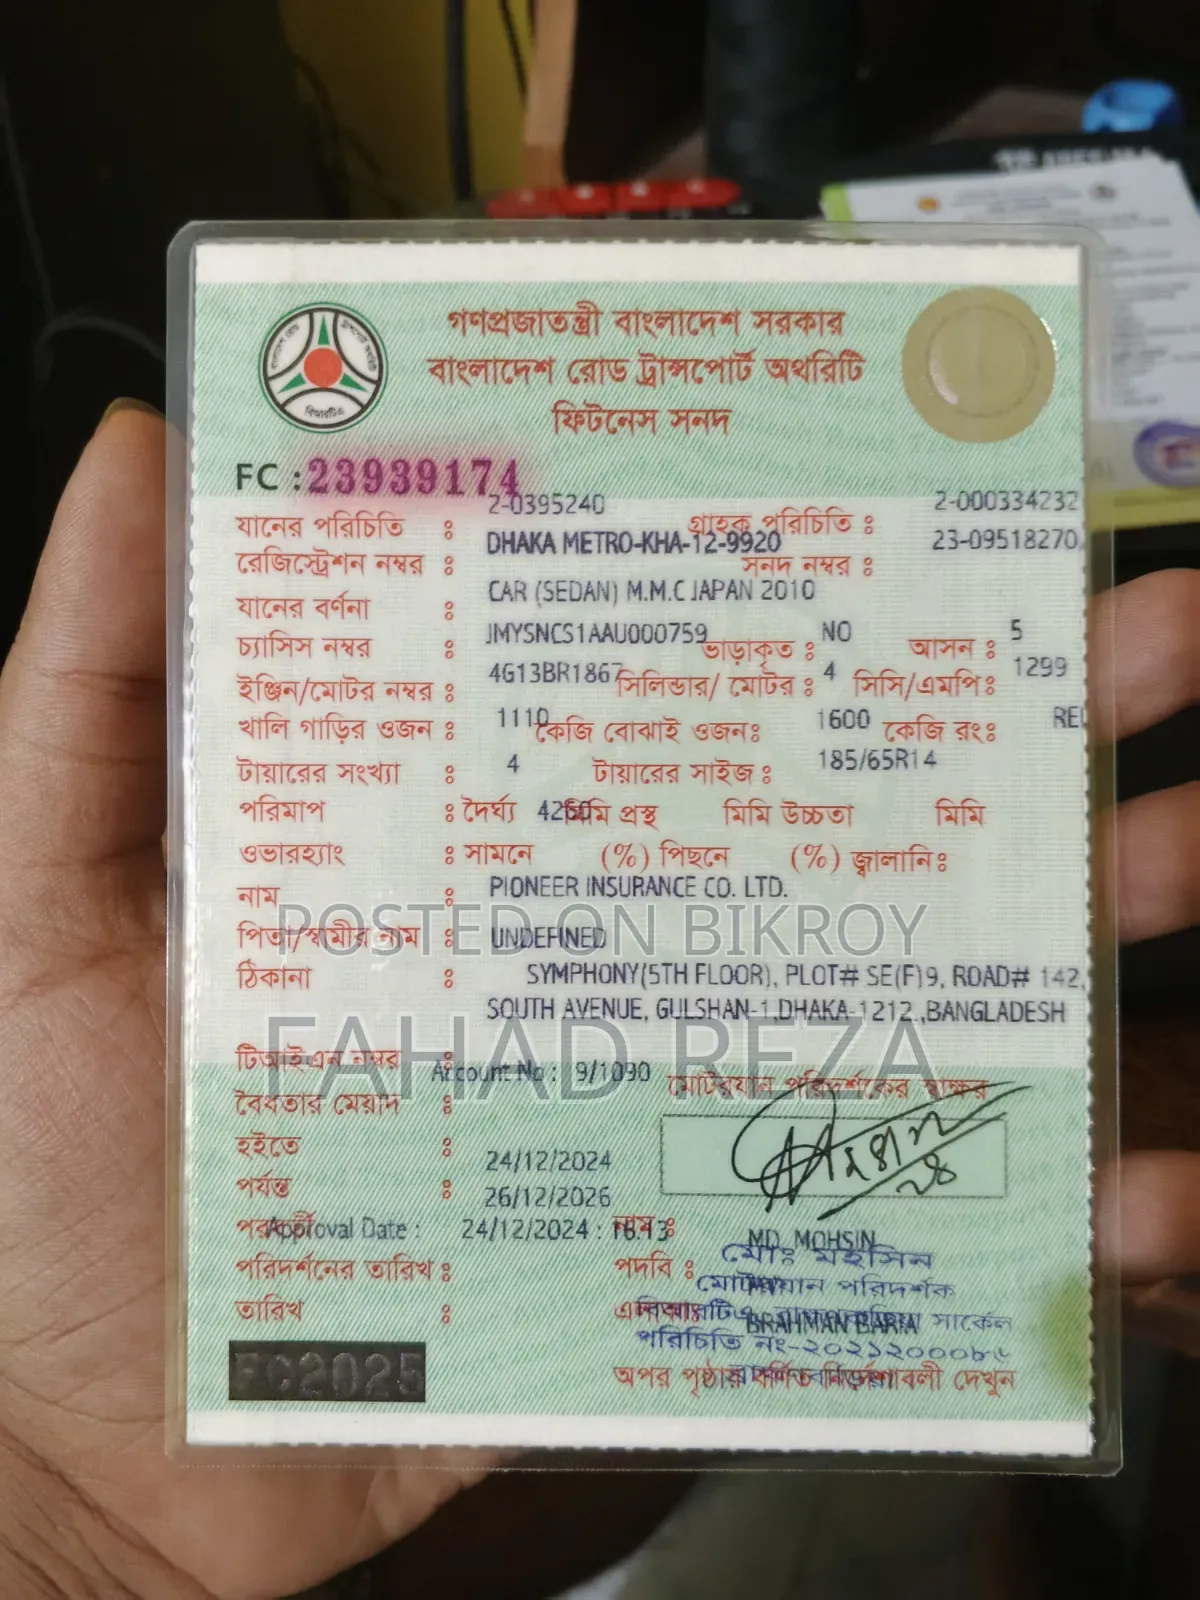 গণপ্রজাতন্ত্রী বাংলাদেশ সরকার
বাংলাদেশ রোড ট্রান্সপোর্ট অথরিটি
ফিটনেস সনদ
বিআরটিএ
FC : 23939174
যানের পরিচিতি : 2-0395240 গ্রাহক পরিচিতি : 2-000334232
রেজিস্ট্রেশন নম্বর : DHAKA METRO-KHA-12-9920 সনদ নম্বর : 23-09518270
যানের বর্ণনা : CAR (SEDAN) M.M.C JAPAN 2010
চ্যাসিস নম্বর : JMYSNCS1AAU000759 ভাড়াকৃত : NO আসন : 5
ইঞ্জিন/মোটর নম্বর : 4G13BR1867 সিলিন্ডার/ মোটর : 4 সিসি/এমপি: 1299
খালি গাড়ির ওজন : 1110 কেজি বোঝাই ওজন: 1600 কেজি রং:
টায়ারের সংখ্যা : 4 টায়ারের সাইজ : 185/65R14
পরিমাপ : দৈর্ঘ্য 4260 মিমি প্রস্থ মিমি উচ্চতা মিমি
ওভারহ্যাং : সামনে (%) পিছনে (%) জ্বালানি:
নাম : PIONEER INSURANCE CO. LTD.
POSTED ON BIKROY
পিতা/স্বামীর নাম : UNDEFINED
ঠিকানা : SYMPHONY(5TH FLOOR), PLOT# SE(F)9, ROAD# 142,
SOUTH AVENUE, GULSHAN-1,DHAKA-1212.,BANGLADESH
FAHAD REZA
টিআইএন নম্বর : Account No : 9/1090
মোটরযান পরিদর্শকের স্বাক্ষর
বৈধতার মেয়াদ :
হইতে : 24/12/2024
পর্যন্ত : 26/12/2026
পরবর্তী Approval Date : 24/12/2024 : 16:13 নাম : MD. MOHSIN
মোঃ মহসিন
পরিদর্শনের তারিখ : পদবি :
মোটরযান পরিদর্শক
তারিখ : BRAHMAN BARIA সার্কেল
পরিচিতি নং-
FC2025
অপর পৃষ্ঠায় বর্ণিত নির্দেশাবলী দেখুন